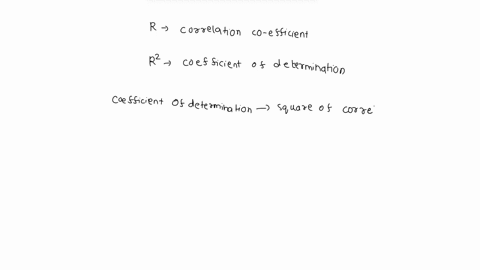 R → correlation co-efficient
R² → coefficient of determination
coefficient of determination → square of corre